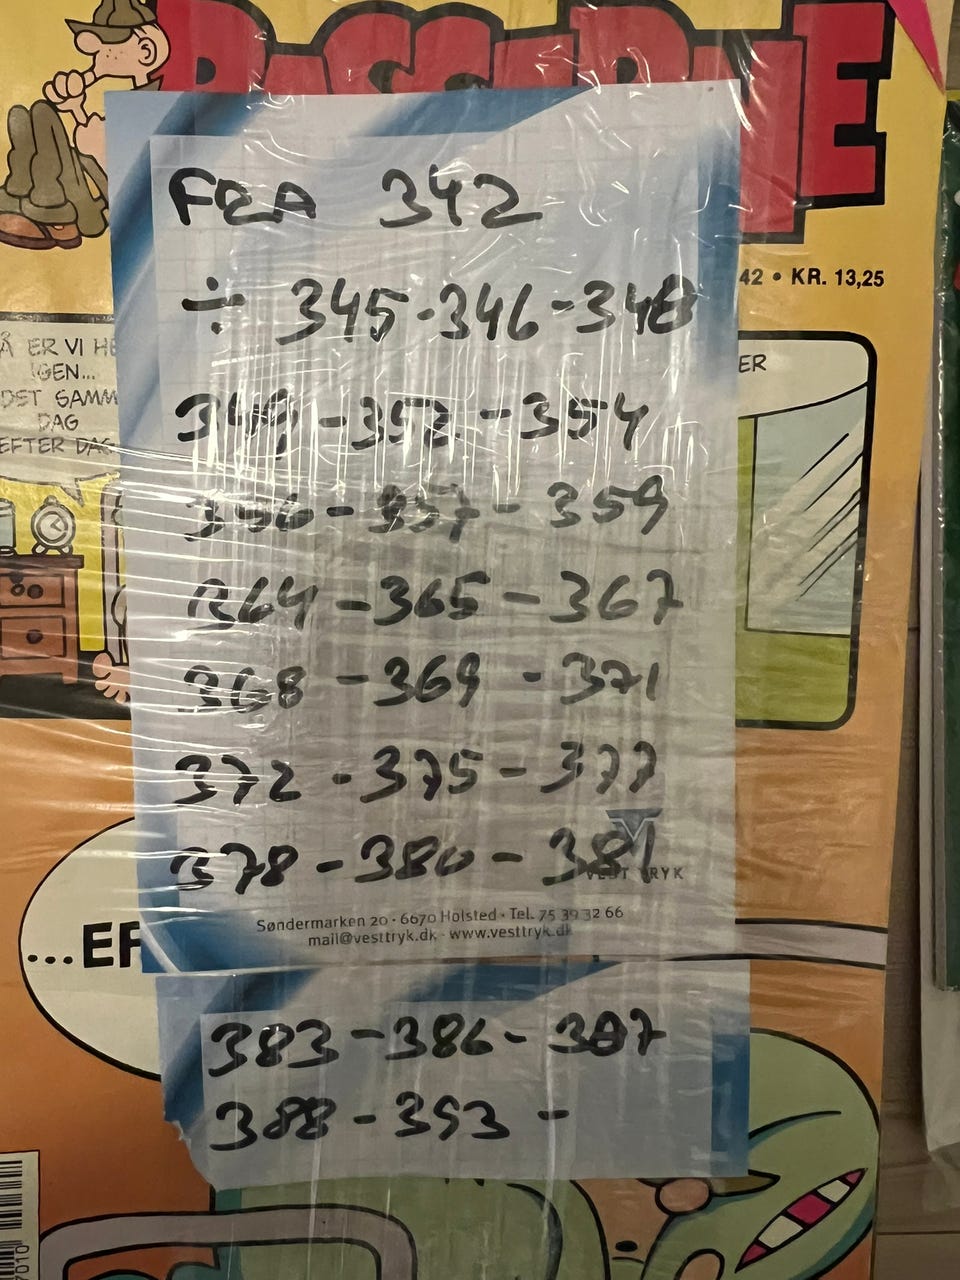 BASSERNE
FRA 342
÷ 345-346-348
42 • KR. 13,25
Å ER VI HE
IGEN...
DET SAMM
DAG
EFTER DAG
ER
349-352-354
356-357-359
364-365-367
368-369-371
372-375-377
378-380-381
VEST TRYK
Søndermarken 20 · 6670 Holsted · Tel. 75 39 32 66
mail@vesttryk.dk · www.vesttryk.dk
...EF
383-386-387
388-393-
7010